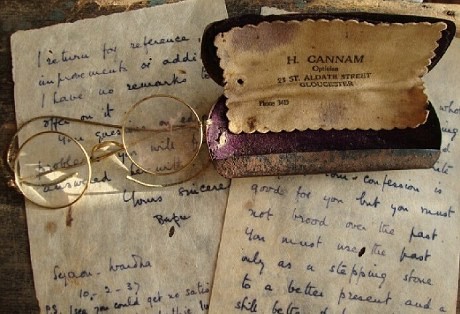 I return for reference
improvements or addi
I have no remarks to
offer on it
You
will b
answered
Yours sincere
Bapu
Segaon-Wardha
10-2-37
P.S. I see you could get no satis
H. CANNAM
Optician
23 ST. ALDATE STREET
GLOUCESTER
Phone
who
confession is
good for you but you must
not brood over the past.
You must use the past
only as a stepping stone
to a better present and a
still better